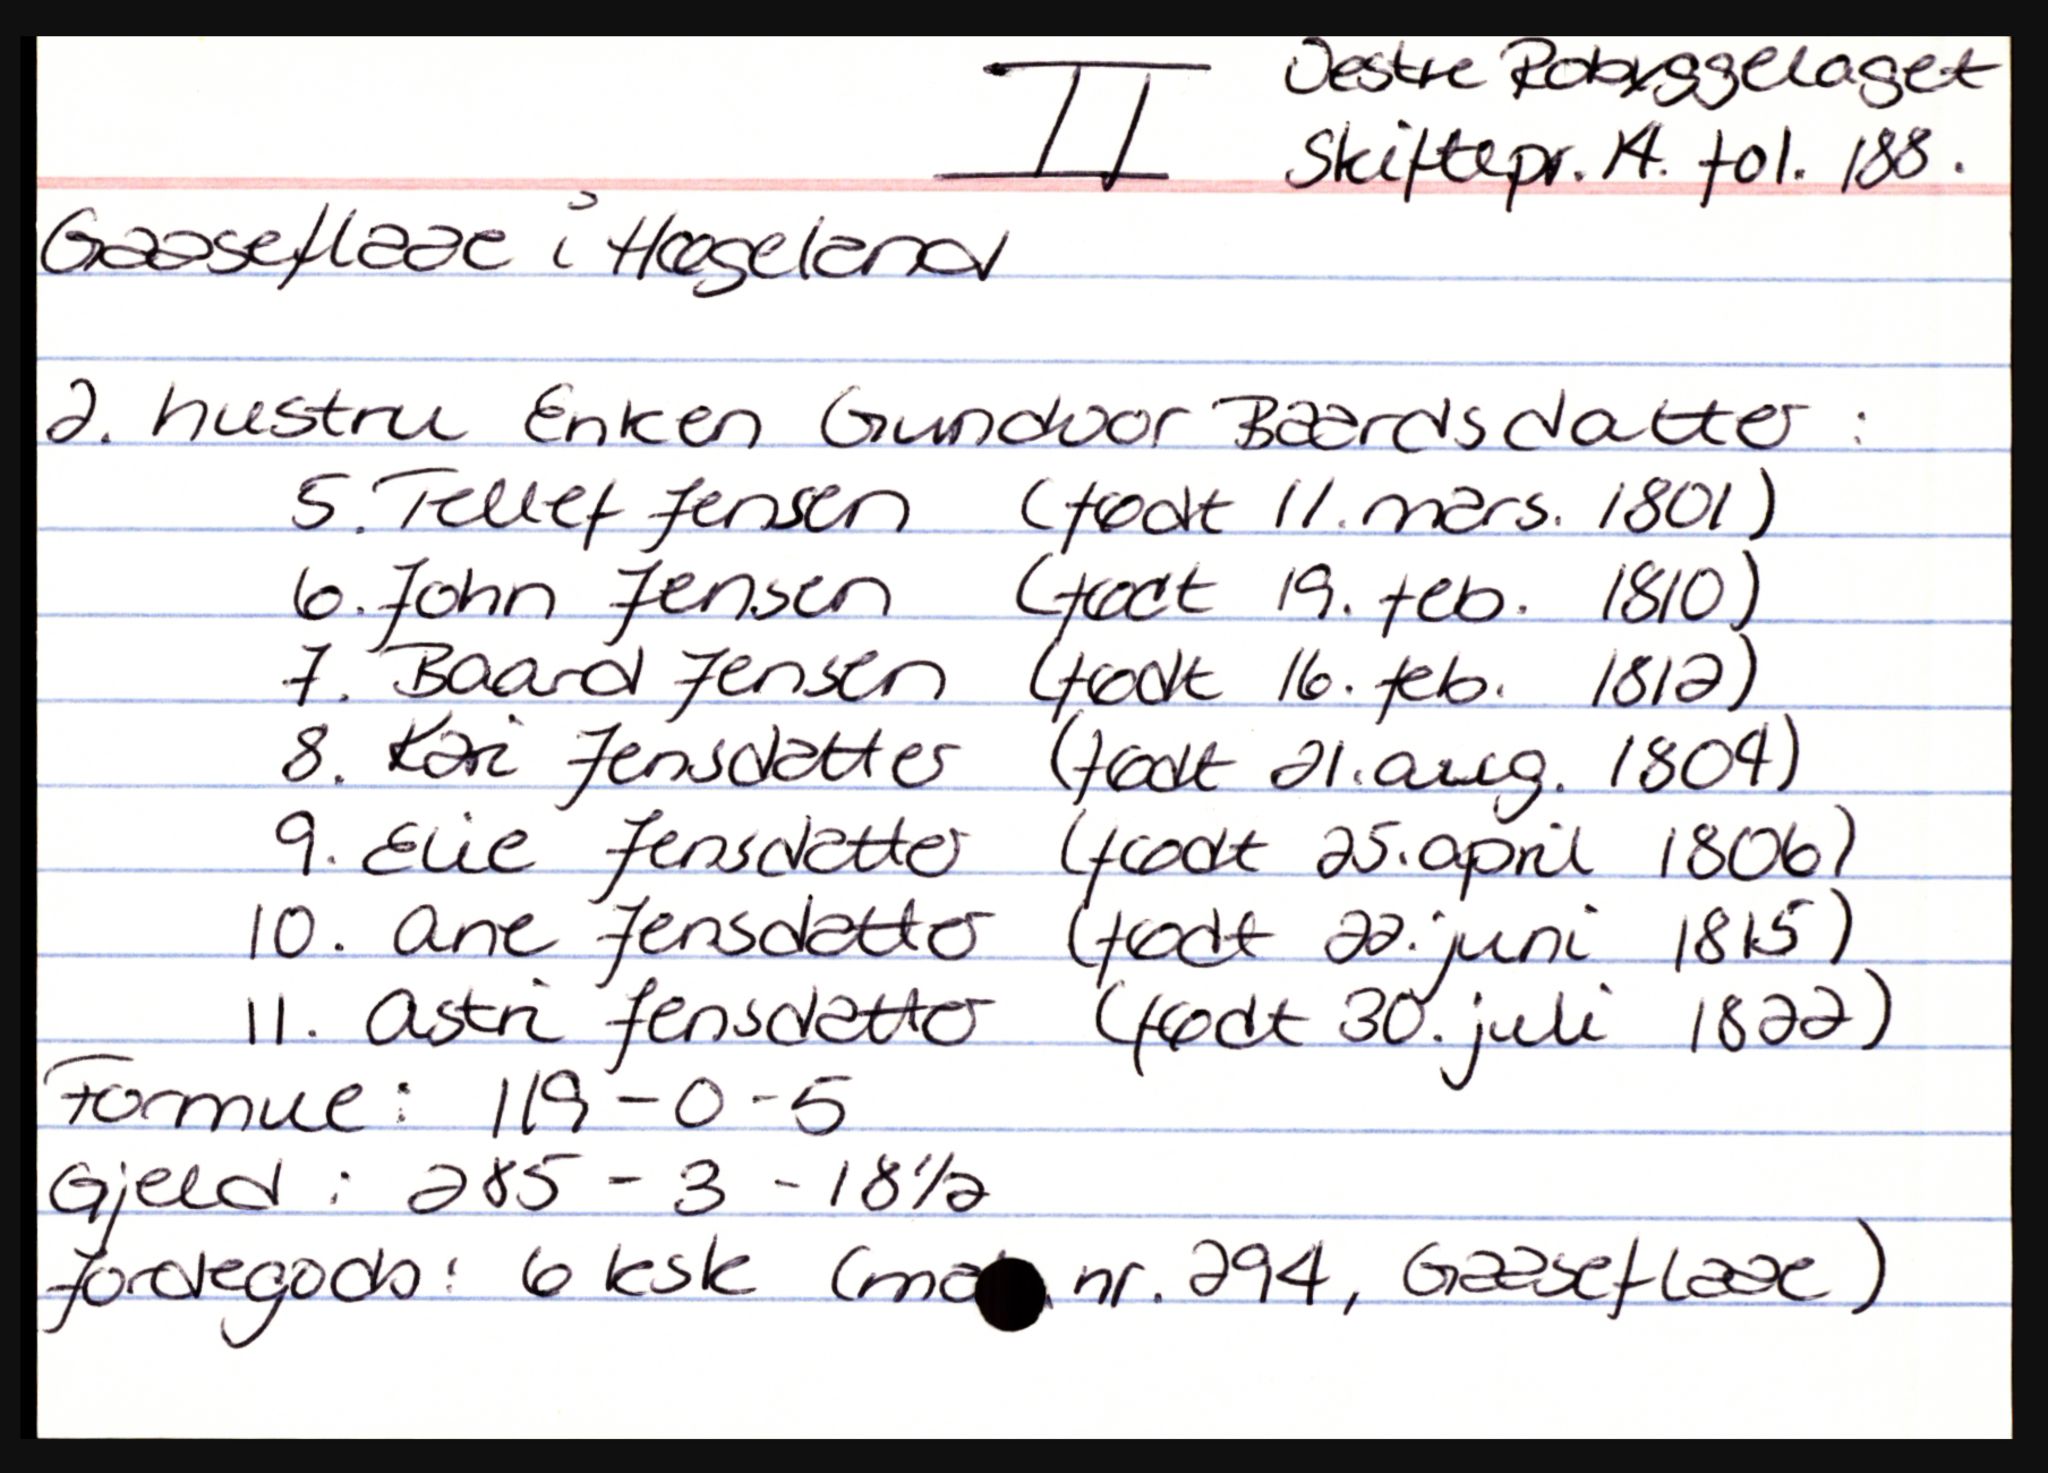 II
Vestre Robyggelaget
Skiftepr. 14. fol. 188.
Gaaseflaae i Hægeland
2. hustru Enken Gundvor Baardsdatter :
5. Tellef Jensen (født 11. mars. 1801)
6. John Jensen (født 19. feb. 1810)
7. Baard Jensen (født 16. feb. 1812)
8. Kari Jensdatter (født 21. aug. 1804)
9. Elie Jensdatter (født 25. april 1806)
10. Ane Jensdatter (født 22. juni 1815)
11. Astri Jensdatter (født 30. juli 1822)
Formue: 119 - 0 - 5
Gjeld : 285 - 3 - 18 1/2
Jordegods: 6 ksk ( nr. 294, Gaaseflaae)